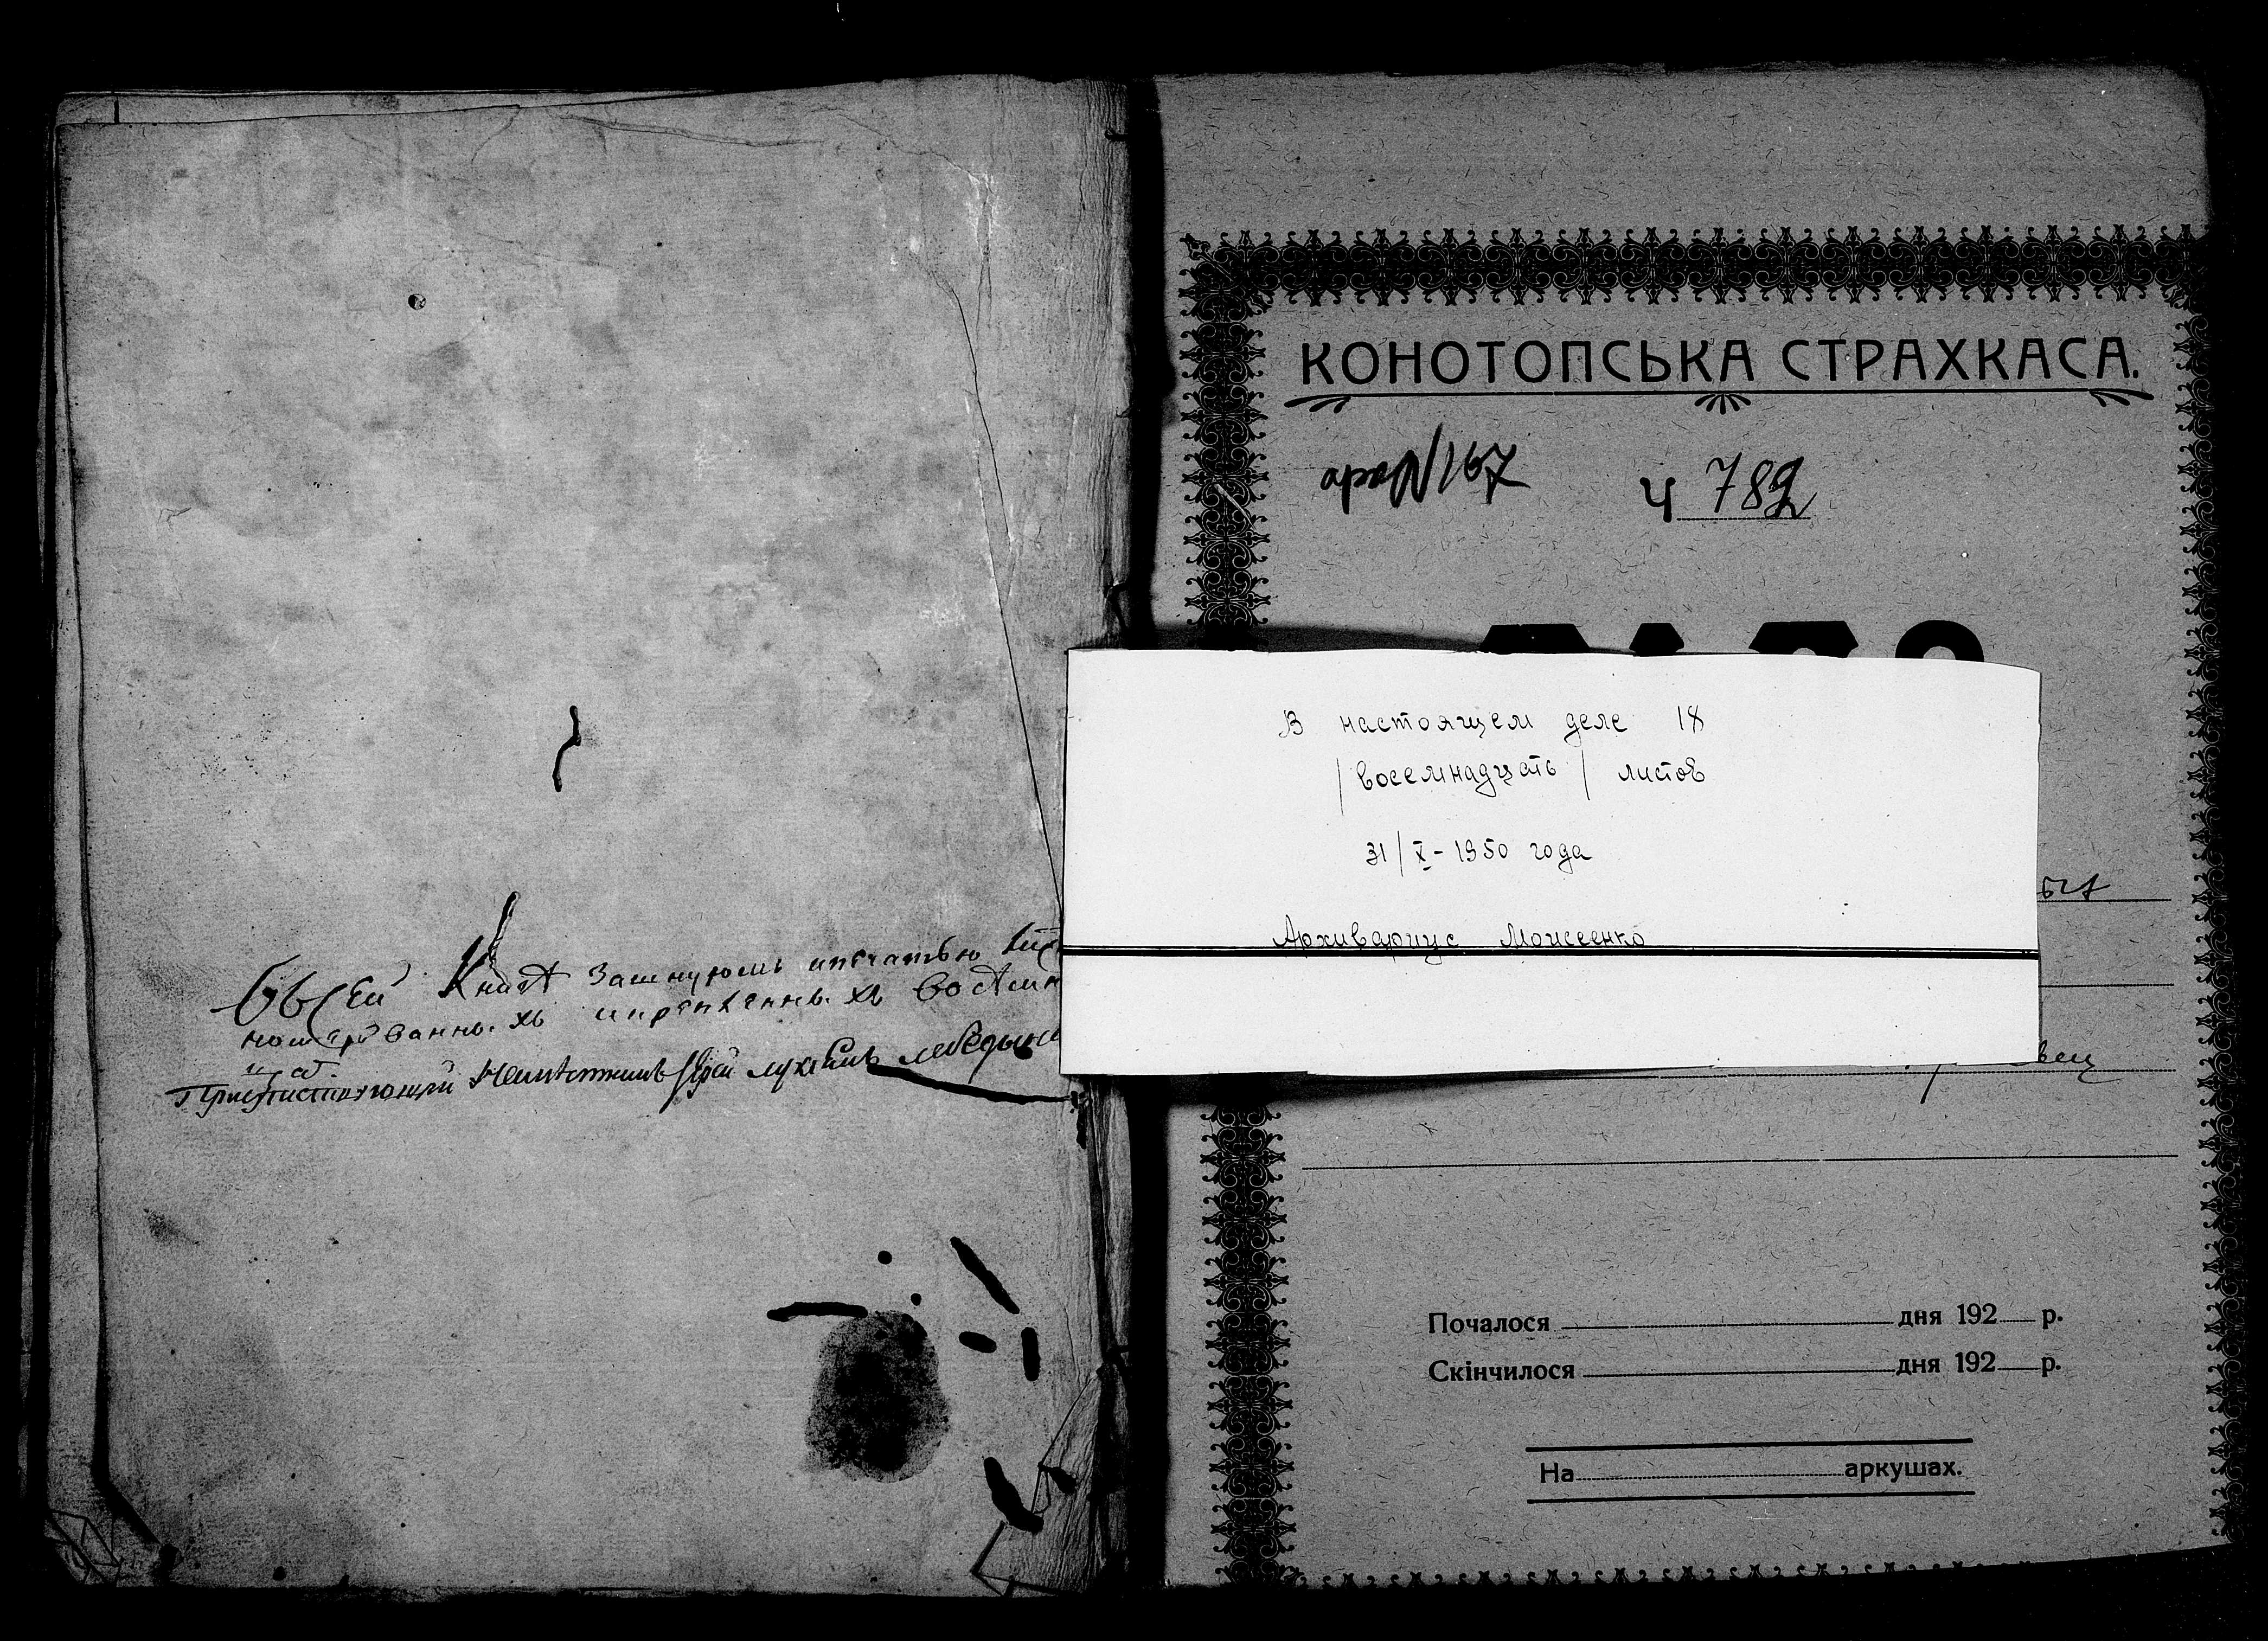 Въ сей Книгѣ зашнуромъ ипечатью
номерованныхъ искрепленныхъ восѣмн
цат.
Присутствующий Iерей лебедын
КОНОТОПСЬКА СТРАХКАСА.
арх N167 Ч 782
В настоящем деле 18
/восемнадцать/ листов
31/X-1950 года
Архивариус Моисеенко
Почалося дня 192 р.
Скінчилося дня 192 р.
На аркушах.